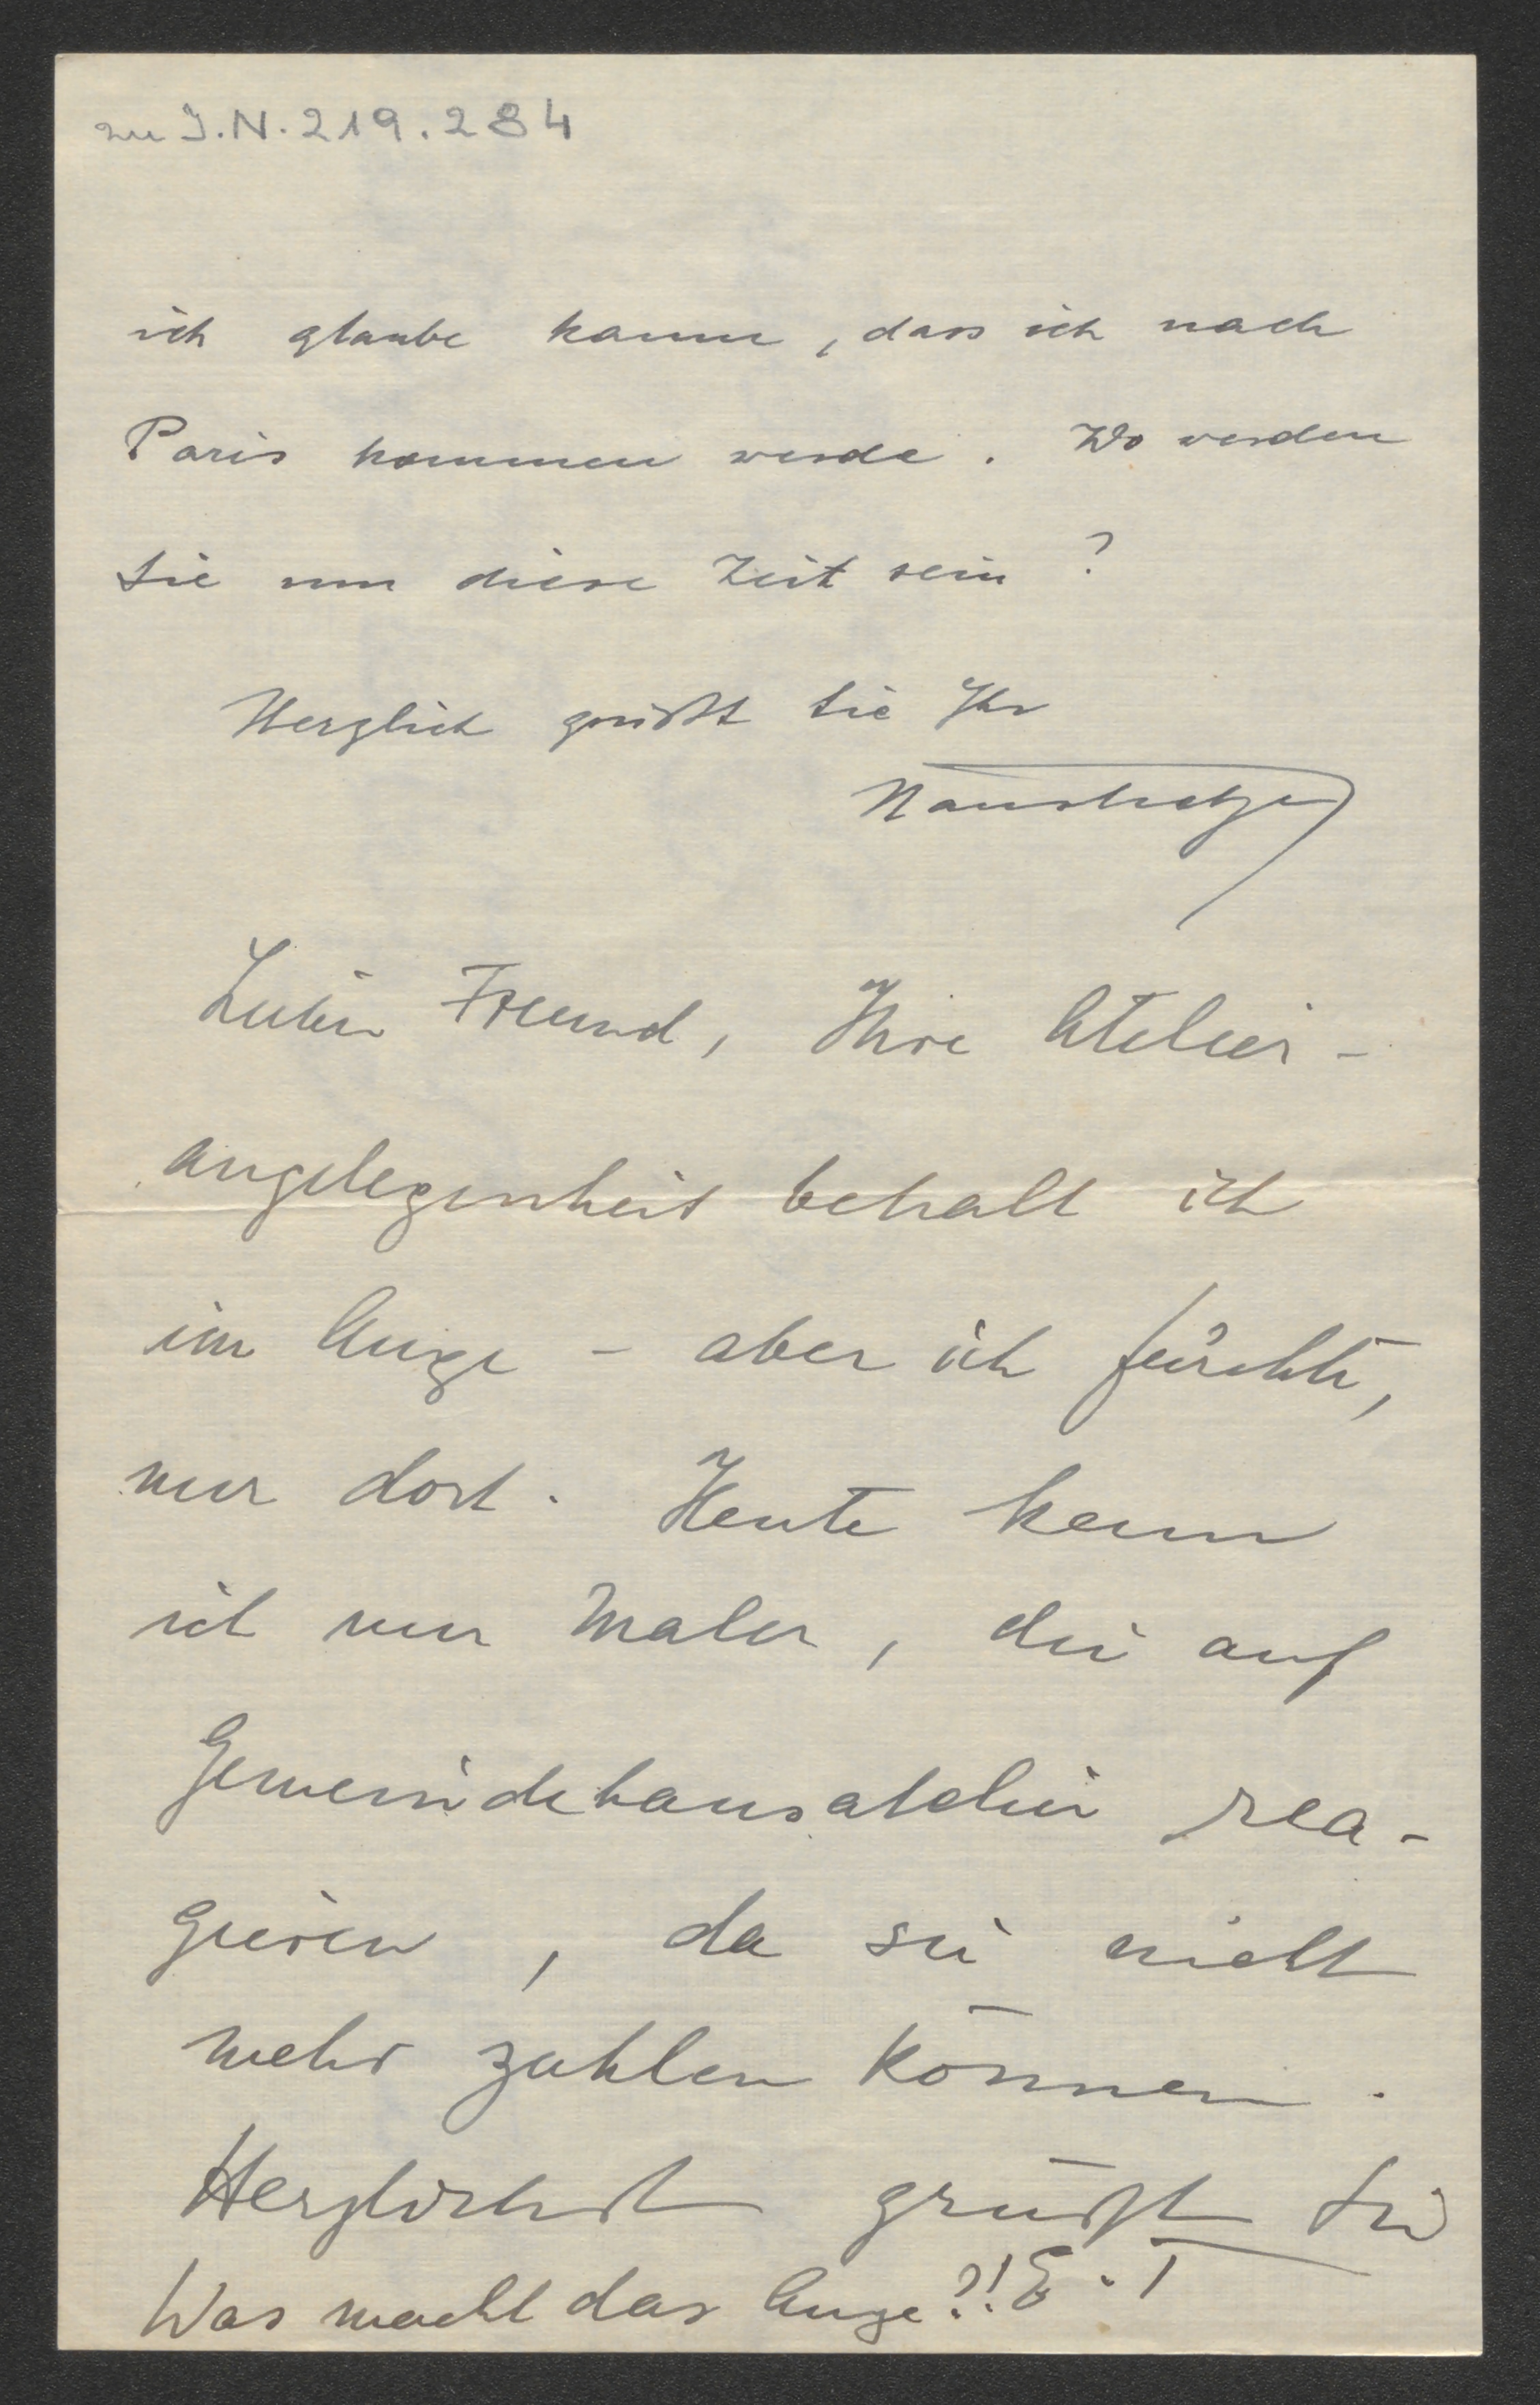 zu I.N. 219.284
ich glaube kaum, dass ich nach
Paris kommen werde. Wo werden
Sie um diese Zeit sein?
Herzlich grüßt Sie Ihr
Lieber Freund, Ihre Atelier-
angelegenheit behalt ich
im Auge - aber ich fürchte,
nur dort. Heute kenn
ich nur Maler, die auf
Gemeindehausatelier rea-
gieren, da sie nicht
mehr zahlen können.
Herzlichst grüßt Sie
Was macht das Auge?! E. T